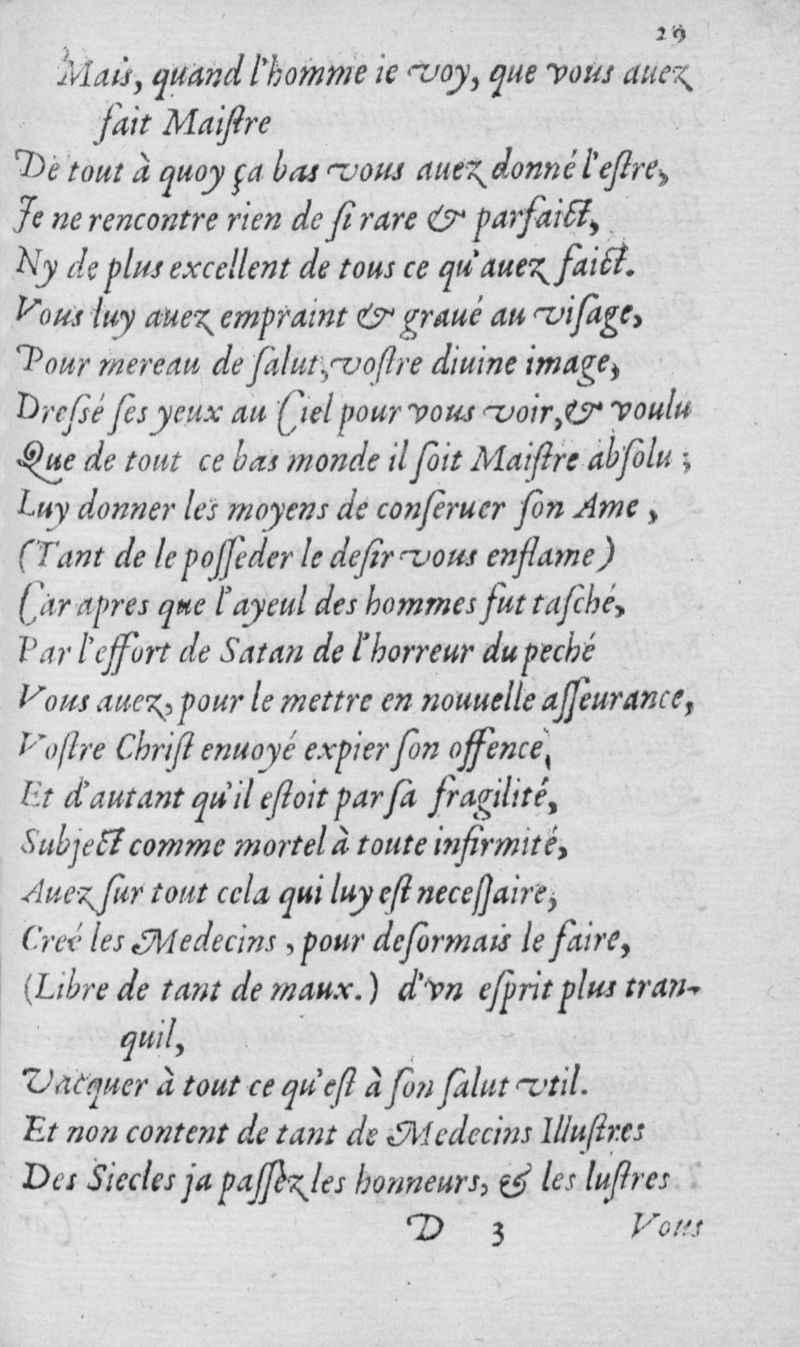 29
Mais, quand l'homme ie voy, que vous auez
fait Maiſtre
De tout à quoy ça bas vous auez donné l'eſtre,
Je ne rencontre rien de ſi rare & parfaict,
Ny de plus excellent de tous ce qu'auez faict.
Vous luy auez empraint & graué au viſage,
Pour mereau de ſalut, voſtre diuine image,
Dreſsé ſes yeux au Ciel pour vous voir, & voulu
Que de tout ce bas monde il ſoit Maiſtre abſolu ;
Luy donner les moyens de conſeruer ſon Ame ,
(Tant de le poſſeder le deſir vous enflame)
Car apres que l'ayeul des hommes fut taſché,
Par l'effort de Satan de l'horreur du peché
Vous auez, pour le mettre en nouuelle aſſeurance,
Voſtre Chriſt enuoyé expier ſon offence,
Et d'autant qu'il eſtoit par ſa fragilité,
Subject comme mortel à toute infirmité,
Auez ſur tout cela qui luy eſt neceſſaire,
Creé les Medecins , pour deſormais le faire,
(Libre de tant de maux.) d'vn eſprit plus tran-
quil,
Vacquer à tout ce qu'eſt à ſon ſalut vtil.
Et non content de tant de Medecins Illuſtres
Des Siecles ja paſſèz les honneurs, & les luſtres
D 3 Vous